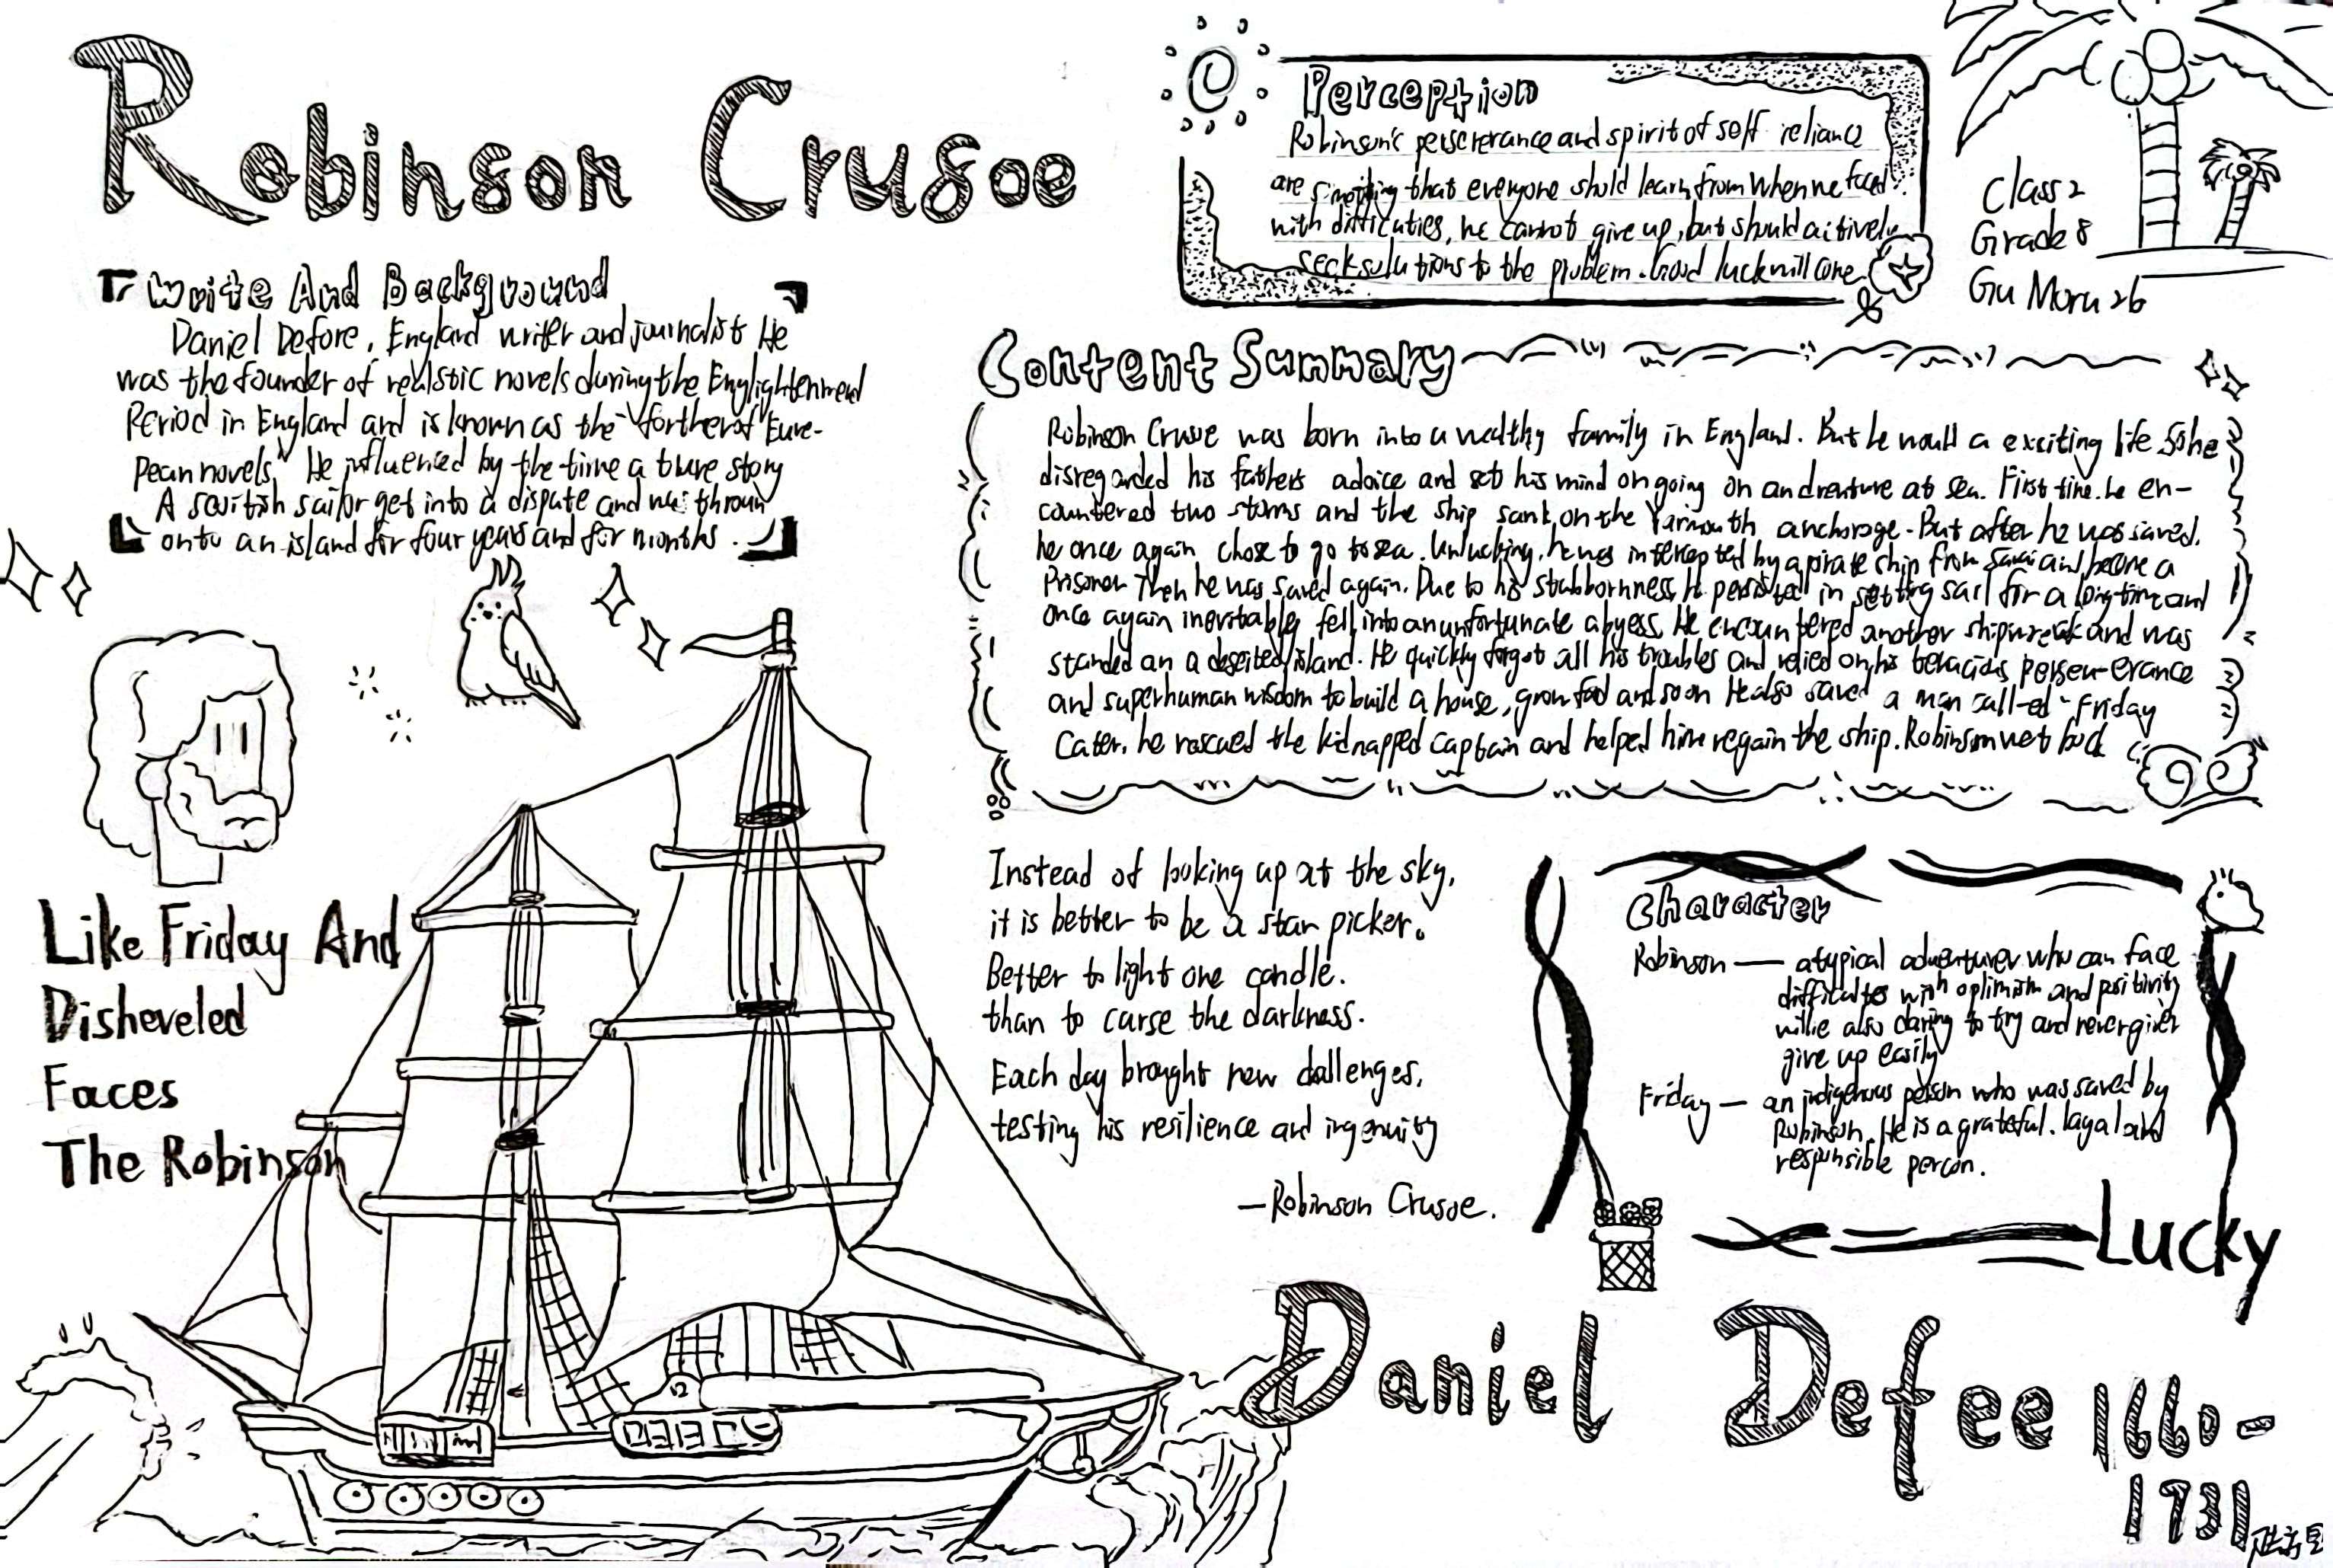 Robinson Crusoe
Write And Background
Daniel Defore, England writer and journalist He
was the founder of realstic novels during the Englightenmend
Period in England and is known as the "fortherof Eure-
pean novels" He influenced by the time a ture story
A scottish sailor get into a dispute and was thrown
onto an island for four years and for months.
Perception
Robinson's perseverance and spirit of self reliance
are something that everyone shold learn from when we faced
with difficuties, he cannot give up, but should actively
seek solutions to the problem. Good luck will come
Class 2
Grade 8
Gu
Content Summary
Robinson Crusoe was born into a wealthy family in England. But he a exciting life So he
disregarded his father's advice and set his mind on going on an adventure at sea. First time. he en-
countered two storms and the ship sank on the Yarmouth anchorage. But after he was saved.
he once again chose to go to sea. he was intercepted by a pirate ship from and become a
Prisoner Then he was saved again. Due to his stubbornness, he persisted in setting sail for a long time and
once again inevitably fell into an unfortunate abyess. He encountered another shipwreak and was
standed an a deserted island. He quickly forgot all his troubles and relied on his tenacious persev-erance
and superhuman wisdom to build a house, grow food and so on He also saved a man call-ed "Friday
Cater, he rescued the kidnapped captain and helped him regain the ship. Robinson wet back
Like Friday And
Disheveled
Faces
The Robinson
Instead of looking up at the sky,
it is better to be a star picker.
Better to light one candle.
than to carse the darkness.
Each day brought new challenges,
testing his resilience and ingenuity
—Robinson Crusoe.
Character
Robinson — a typical adventurer who can face
difficultes with optimism and positivity
willie also daring to try and never
give up easily
Friday — an indigenous person who was saved by
Robinson. He is a grateful. layal and
responsible percon.
Lucky
Daniel Defee 1660-
1731